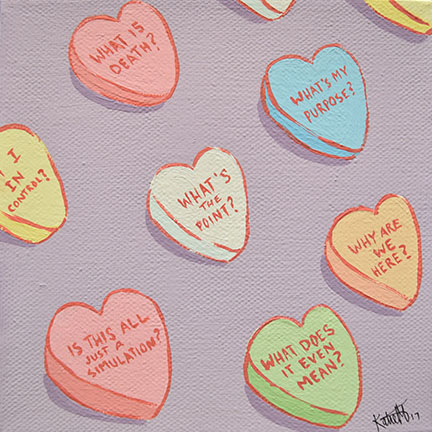 WHAT IS
DEATH?
WHAT'S MY
PURPOSE?
I
IN
CONTROL?
WHAT'S
THE
POINT?
WHY ARE
WE
HERE?
IS THIS ALL
JUST A
SIMULATION?
WHAT DOES
IT EVEN
MEAN?
17